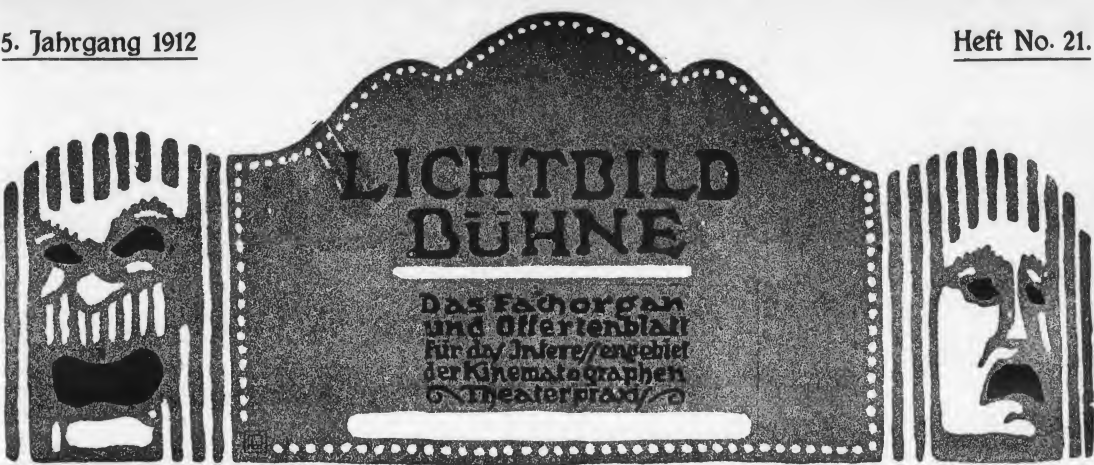 5. Jahrgang 1912
Heft No. 21.
LICHTBILD
BÜHNE
Das Fachorgan
und Offertenblatt
für das Interessengebiet
der Kinematographen
Theaterpraxis